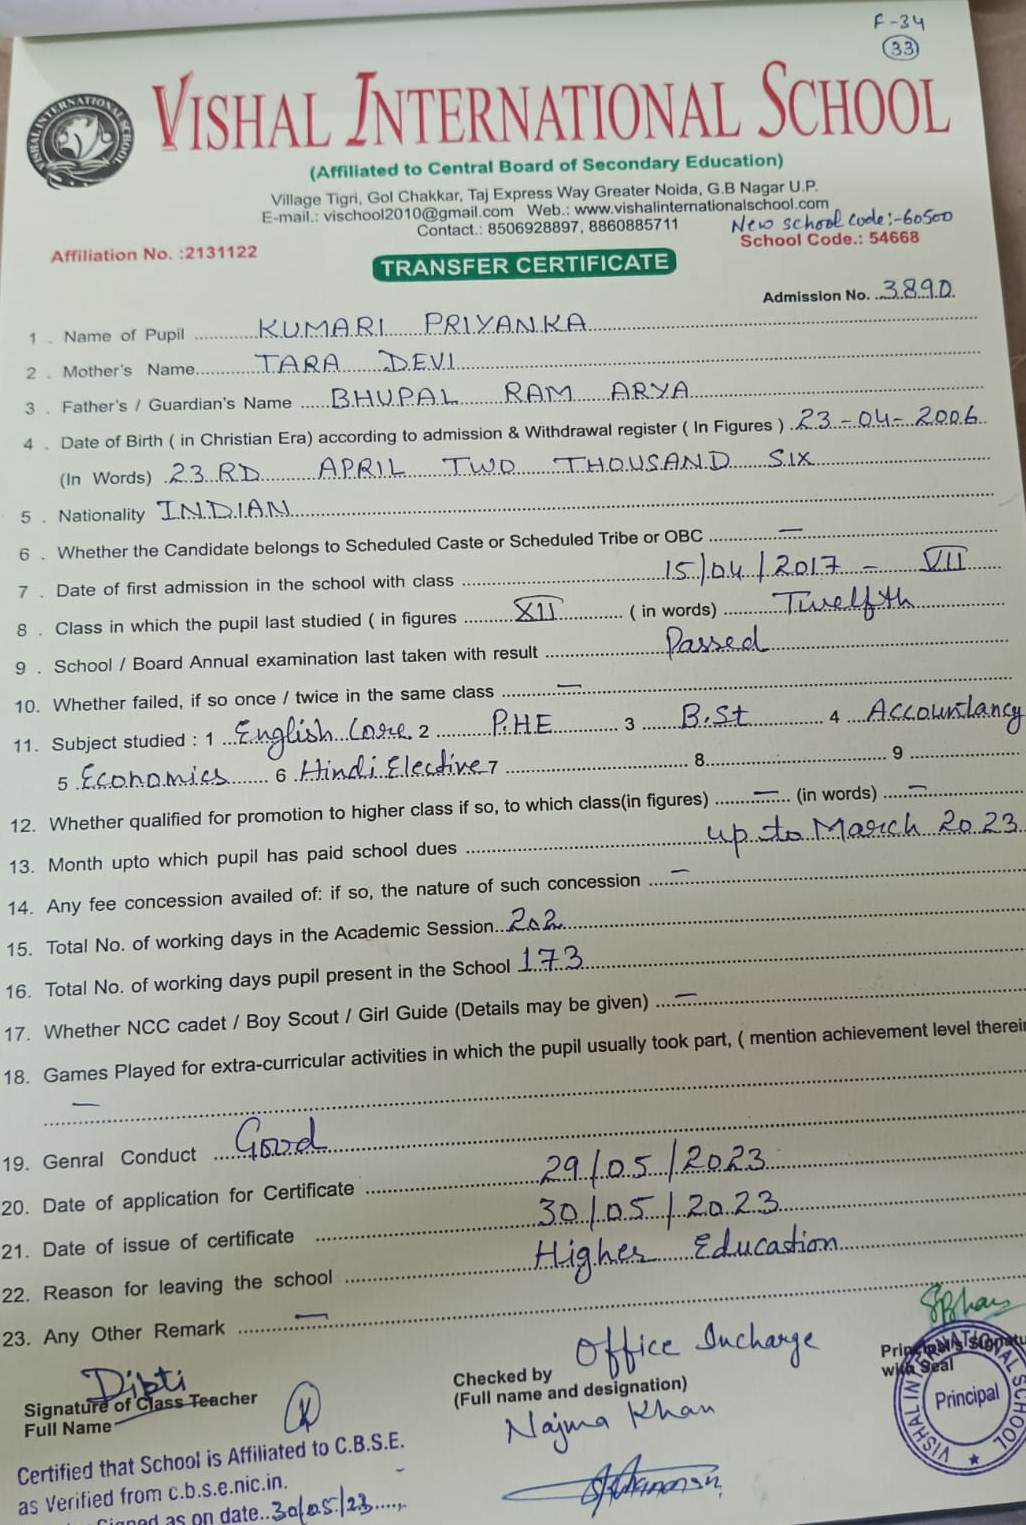 F-34
33
VISHAL INTERNATIONAL SCHOOL
VISHAL INTERNATIONAL SCHOOL
(Affiliated to Central Board of Secondary Education)
Village Tigri, Gol Chakkar, Taj Express Way Greater Noida, G.B Nagar U.P.
E-mail.: vischool2010@gmail.com Web.: www.vishalinternationalschool.com
Contact.: 8506928897, 8860885711
New school code:-60500
Affiliation No. :2131122
School Code.: 54668
TRANSFER CERTIFICATE
Admission No. 3890
1 . Name of Pupil KUMARI PRIYANKA
2 . Mother's Name TARA DEVI
3 . Father's / Guardian's Name BHUPAL RAM ARYA
4 . Date of Birth ( in Christian Era) according to admission & Withdrawal register ( In Figures ) 23-04-2006
(In Words) 23RD APRIL TWO THOUSAND SIX
5 . Nationality INDIAN
6 . Whether the Candidate belongs to Scheduled Caste or Scheduled Tribe or OBC —
7 . Date of first admission in the school with class 15/04/2017 - VII
8 . Class in which the pupil last studied ( in figures XII ( in words) Twelfth
9 . School / Board Annual examination last taken with result Passed
10. Whether failed, if so once / twice in the same class —
11. Subject studied : 1 English Core 2 P.HE 3 B.St 4 Accountancy
5 Economics 6 Hindi Elective 7 8 9
12. Whether qualified for promotion to higher class if so, to which class(in figures) — (in words) —
13. Month upto which pupil has paid school dues up to March 2023
14. Any fee concession availed of: if so, the nature of such concession —
15. Total No. of working days in the Academic Session 202
16. Total No. of working days pupil present in the School 173
17. Whether NCC cadet / Boy Scout / Girl Guide (Details may be given) —
18. Games Played for extra-curricular activities in which the pupil usually took part, ( mention achievement level therein
—
19. Genral Conduct Good
20. Date of application for Certificate 29/05/2023
21. Date of issue of certificate 30/05/2023
22. Reason for leaving the school Higher Education
23. Any Other Remark —
Dipti
Signature of Class Teacher
Full Name
Checked by Office Incharge
(Full name and designation)
Najma Khan
Principal's Signatu
with Seal
VISHAL INTERNATIONAL SCHOOL
Principal
Certified that School is Affiliated to C.B.S.E.
as Verified from c.b.s.e.nic.in.
as on date..30/05/23